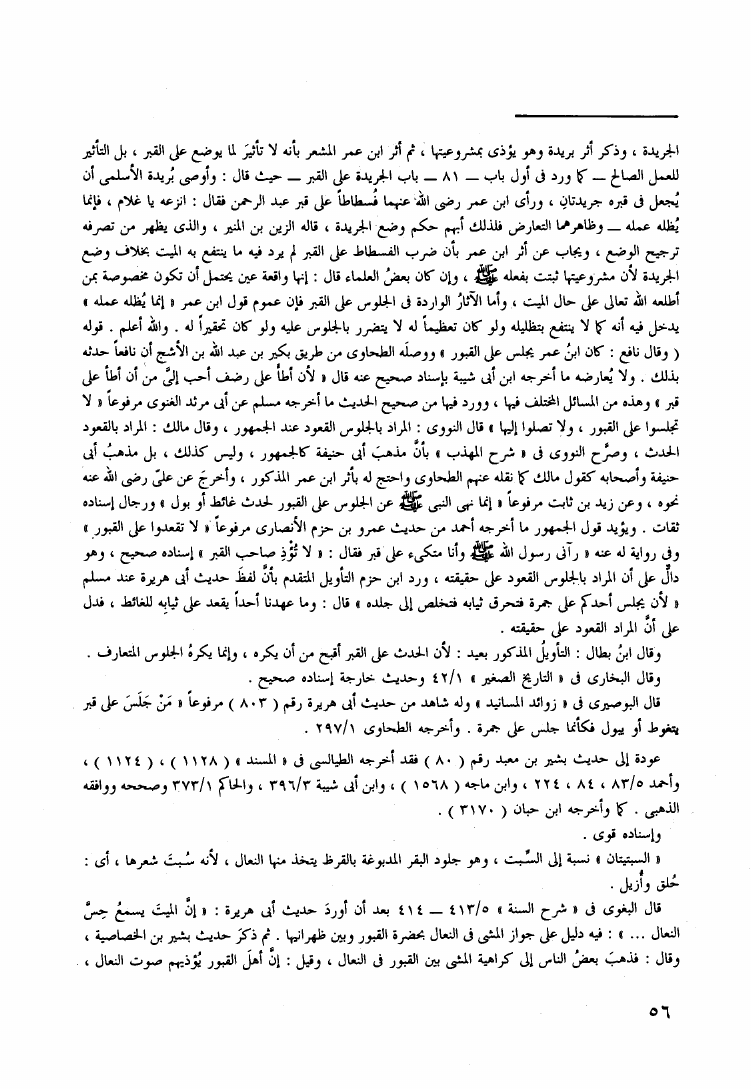 الجريدة ، وذكر أثر بريدة وهو يؤذى بمشروعيتها ، ثم أثر ابن عمر المشعر بأنه لا تأثيرَ لما يوضع على القبر ، بل التأثير
للعمل الصالح — كما ورد فى أول باب — ٨١ — باب الجريدة على القبر — حيث قال : وأوصى بُريدة الأسلمى أن
يُجعل فى قبره جريدتانِ ، ورأى ابن عمر رضى الله عنهما فُسطاطاً على قبر عبد الرحمن فقال : انزعه يا غلام ، فإنما
يُظله عمله — وظاهرهما التعارض فلذلك أبهم حكم وضع الجريدة ، قاله الزين بن المنير ، والذى يظهر من تصرفه
ترجيح الوضع ، ويجاب عن أثر ابن عمر بأن ضرب الفسطاط على القبر لم يرد فيه ما ينتفع به الميت بخلاف وضع
الجريدة لأن مشروعيتها ثبتت بفعله ﷺ ، وإن كان بعضُ العلماء قال : إنها واقعة عين يحتمل أن تكون مخصوصة بمن
أطلعه الله تعالى على حال الميت ، وأما الآثارُ الواردة فى الجلوس على القبر فإن عموم قول ابن عمر « إنما يُظله عمله »
يدخل فيه أنه كما لا ينتفع بتظليله ولو كان تعظيماً له لا يتضرر بالجلوس عليه ولو كان تحقيراً له . والله أعلم . قوله
( وقال نافع : كان ابنُ عمر يجلس على القبور » ووصلَه الطحاوى من طريق بكير بن عبد الله بن الأشج أن نافعاً حدثه
بذلك . ولا يُعارضه ما أخرجه ابن أبى شيبة بإسناد صحيح عنه قال « لأن أطأَ على رضف أحب إليَّ من أن أطأ على
قبر » وهذه من المسائل المختلف فيها ، وورد فيها من صحيح الحديث ما أخرجه مسلم عن أبى مرثد الغنوى مرفوعاً « لا
تجلسوا على القبور ، ولا تصلوا إليها » قال النووى : المراد بالجلوس القعود عند الجمهور ، وقال مالك : المراد بالقعود
الحدث ، وصرَّح النووى فى « شرح المهذب » بأنَّ مذهبَ أبى حنيفة كالجمهور ، وليس كذلك ، بل مذهبُ أبى
حنيفة وأصحابه كقول مالك كما نقله عنهم الطحاوى واحتج له بأثر ابن عمر المذكور ، وأخرجَ عن علىّ رضى الله عنه
نحوه ، وعن زيد بن ثابت مرفوعاً « إنما نهى النبى ﷺ عن الجلوس على القبور لحدث غائط أو بول » ورجال إسناده
ثقات . ويؤيد قول الجمهور ما أخرجه أحمد من حديث عمرو بن حزم الأنصارى مرفوعاً « لا تقعدوا على القبور »
وفى رواية له عنه « رآنى رسول الله ﷺ وأنا متكىء على قبر فقال : « لا تُؤْذِ صاحب القبر » إسناده صحيح ، وهو
دالٌّ على أن المراد بالجلوس القعود على حقيقته ، ورد ابن حزم التأويل المتقدم بأنَّ لفظَ حديث أبى هريرة عند مسلم
« لأن يجلس أحدكم على جمرة فتحرق ثيابه فتخلص إلى جلده » قال : وما عهدنا أحداً يقعد على ثيابِه للغائط ، فدل
على أنَّ المراد القعود على حقيقته .
وقال ابنُ بطال : التأويلُ المذكور بعيد : لأن الحدث على القبر أقبح من أن يكره ، وإنما يكرهُ الجلوس المتعارف .
وقال البخارى فى « التاريخ الصغير » ٤٢/١ وحديث خارجة إسناده صحيح .
قال البوصيرى فى « زوائد المسانيد » وله شاهد من حديث أبى هريرة رقم ( ٨٠٣ ) مرفوعاً « مَنْ جَلَسَ على قبر
يتغوط أو يبول فكأنما جلس على جمرة . وأخرجه الطحاوى ٢٩٧/١ .
عودة إلى حديث بشير بن معبد رقم ( ٨٠ ) فقد أخرجه الطيالسى فى « المسند » ( ١١٢٨ ) ، ( ١١٢٤ ) ،
وأحمد ٨٣/٥ ، ٨٤ ، ٢٢٤ ، وابن ماجه ( ١٥٦٨ ) ، وابن أبى شيبة ٣٩٦/٣ ، والحاكم ٣٧٣/١ وصححه ووافقه
الذهبى . كما وأخرجه ابن حبان ( ٣١٧٠ ) .
وإسناده قوى .
« السبتيتان » نسبة إلى السِّبت ، وهو جلود البقر المدبوغة بالقرظ يتخذ منها النعال ، لأنه سُبتَ شعرها ، أى :
حُلق وأُزيل .
قال البغوى فى « شرح السنة » ٤١٣/٥ — ٤١٤ بعد أن أوردَ حديث أبى هريرة : « إنَّ الميتَ يسمعُ حِسَّ
النعال ... » : فيه دليل على جواز المشى فى النعال بحضرة القبور وبين ظهرانيها . ثم ذكرَ حديث بشير بن الخصاصية ،
وقال : فذهبَ بعضُ الناس إلى كراهية المشى بين القبور فى النعال ، وقيل : إنَّ أهلَ القبور يُؤذيهم صوت النعال ،
٥٦